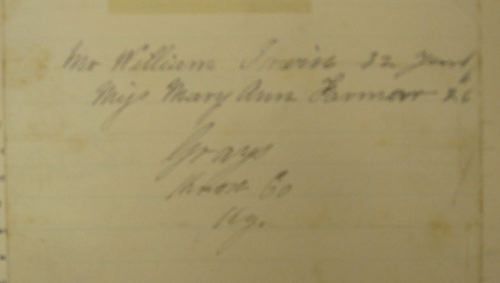 Mr William Irvin 32 years
Miss Mary Ann Farmer 26
Grays
Knox Co
Ky.